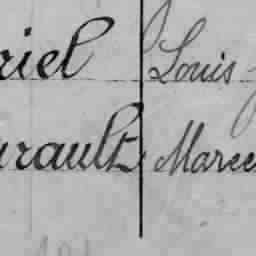 riel Louis-
urault Marce